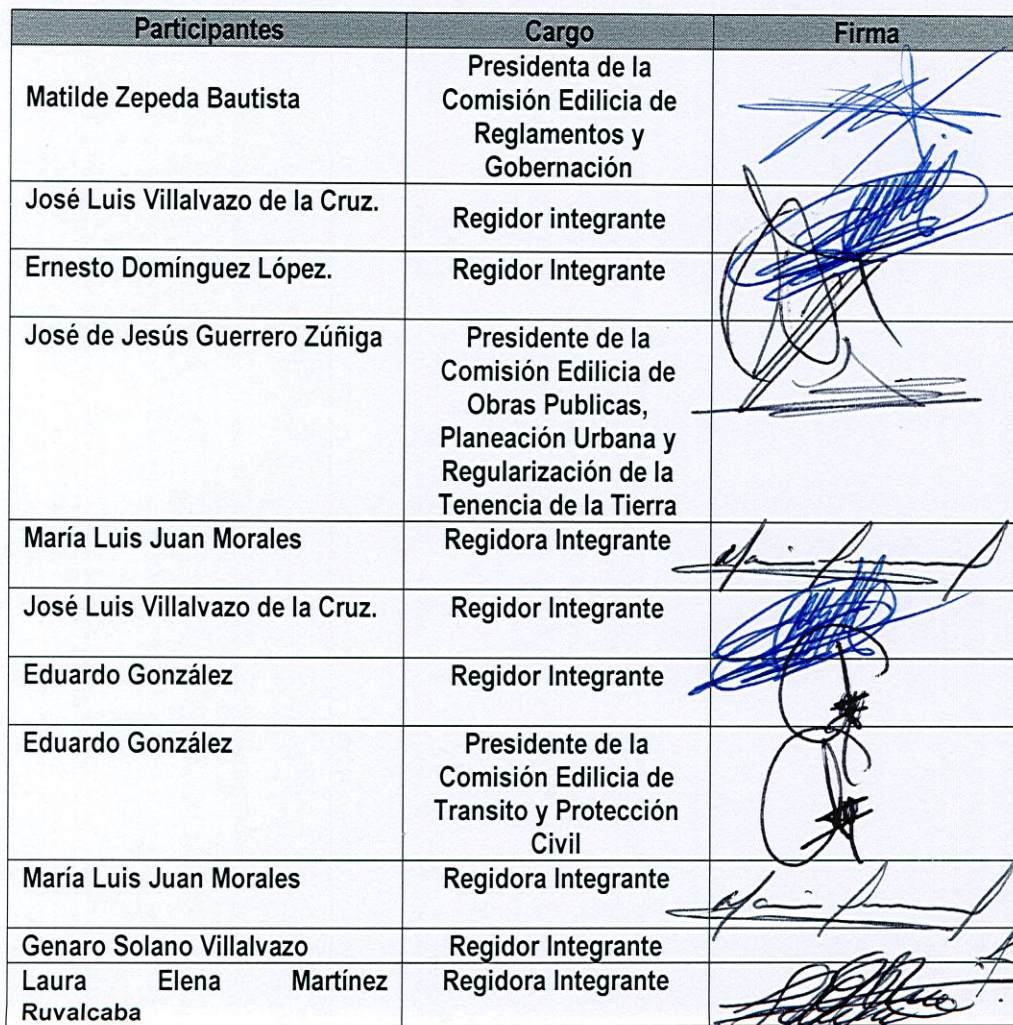 Participantes Cargo Firma
Matilde Zepeda Bautista
Presidenta de la
Comisión Edilicia de
Reglamentos y
Gobernación
José Luis Villalvazo de la Cruz.
Regidor integrante
Ernesto Domínguez López.
Regidor Integrante
José de Jesús Guerrero Zúñiga
Presidente de la
Comisión Edilicia de
Obras Publicas,
Planeación Urbana y
Regularización de la
Tenencia de la Tierra
María Luis Juan Morales
Regidora Integrante
José Luis Villalvazo de la Cruz.
Regidor Integrante
Eduardo González
Regidor Integrante
Eduardo González
Presidente de la
Comisión Edilicia de
Transito y Protección
Civil
María Luis Juan Morales
Regidora Integrante
Genaro Solano Villalvazo
Regidor Integrante
Laura Elena Martínez
Ruvalcaba
Regidora Integrante